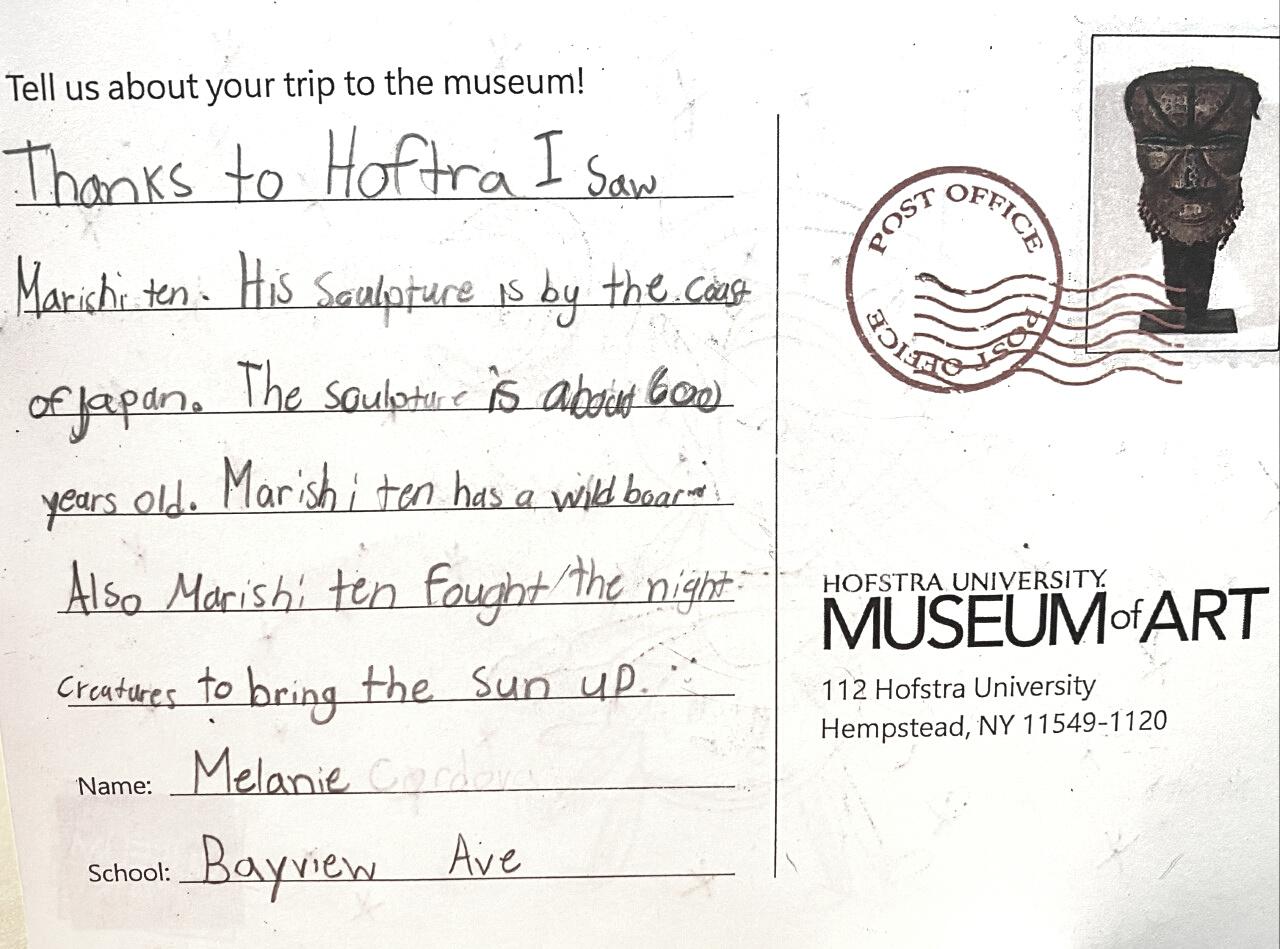 Tell us about your trip to the museum!
Thanks to Hoftra I Saw
Marishi ten. His Sculpture is by the coast
of Japan. The sculpture is about 600
years old. Marishi ten has a wild boar
Also Marishi ten fought the night
creatures to bring the sun up.
Name: Melanie Cordova
School: Bayview Ave
POST OFFICE
POST OFFICE
HOFSTRA UNIVERSITY
MUSEUM of ART
112 Hofstra University
Hempstead, NY 11549-1120